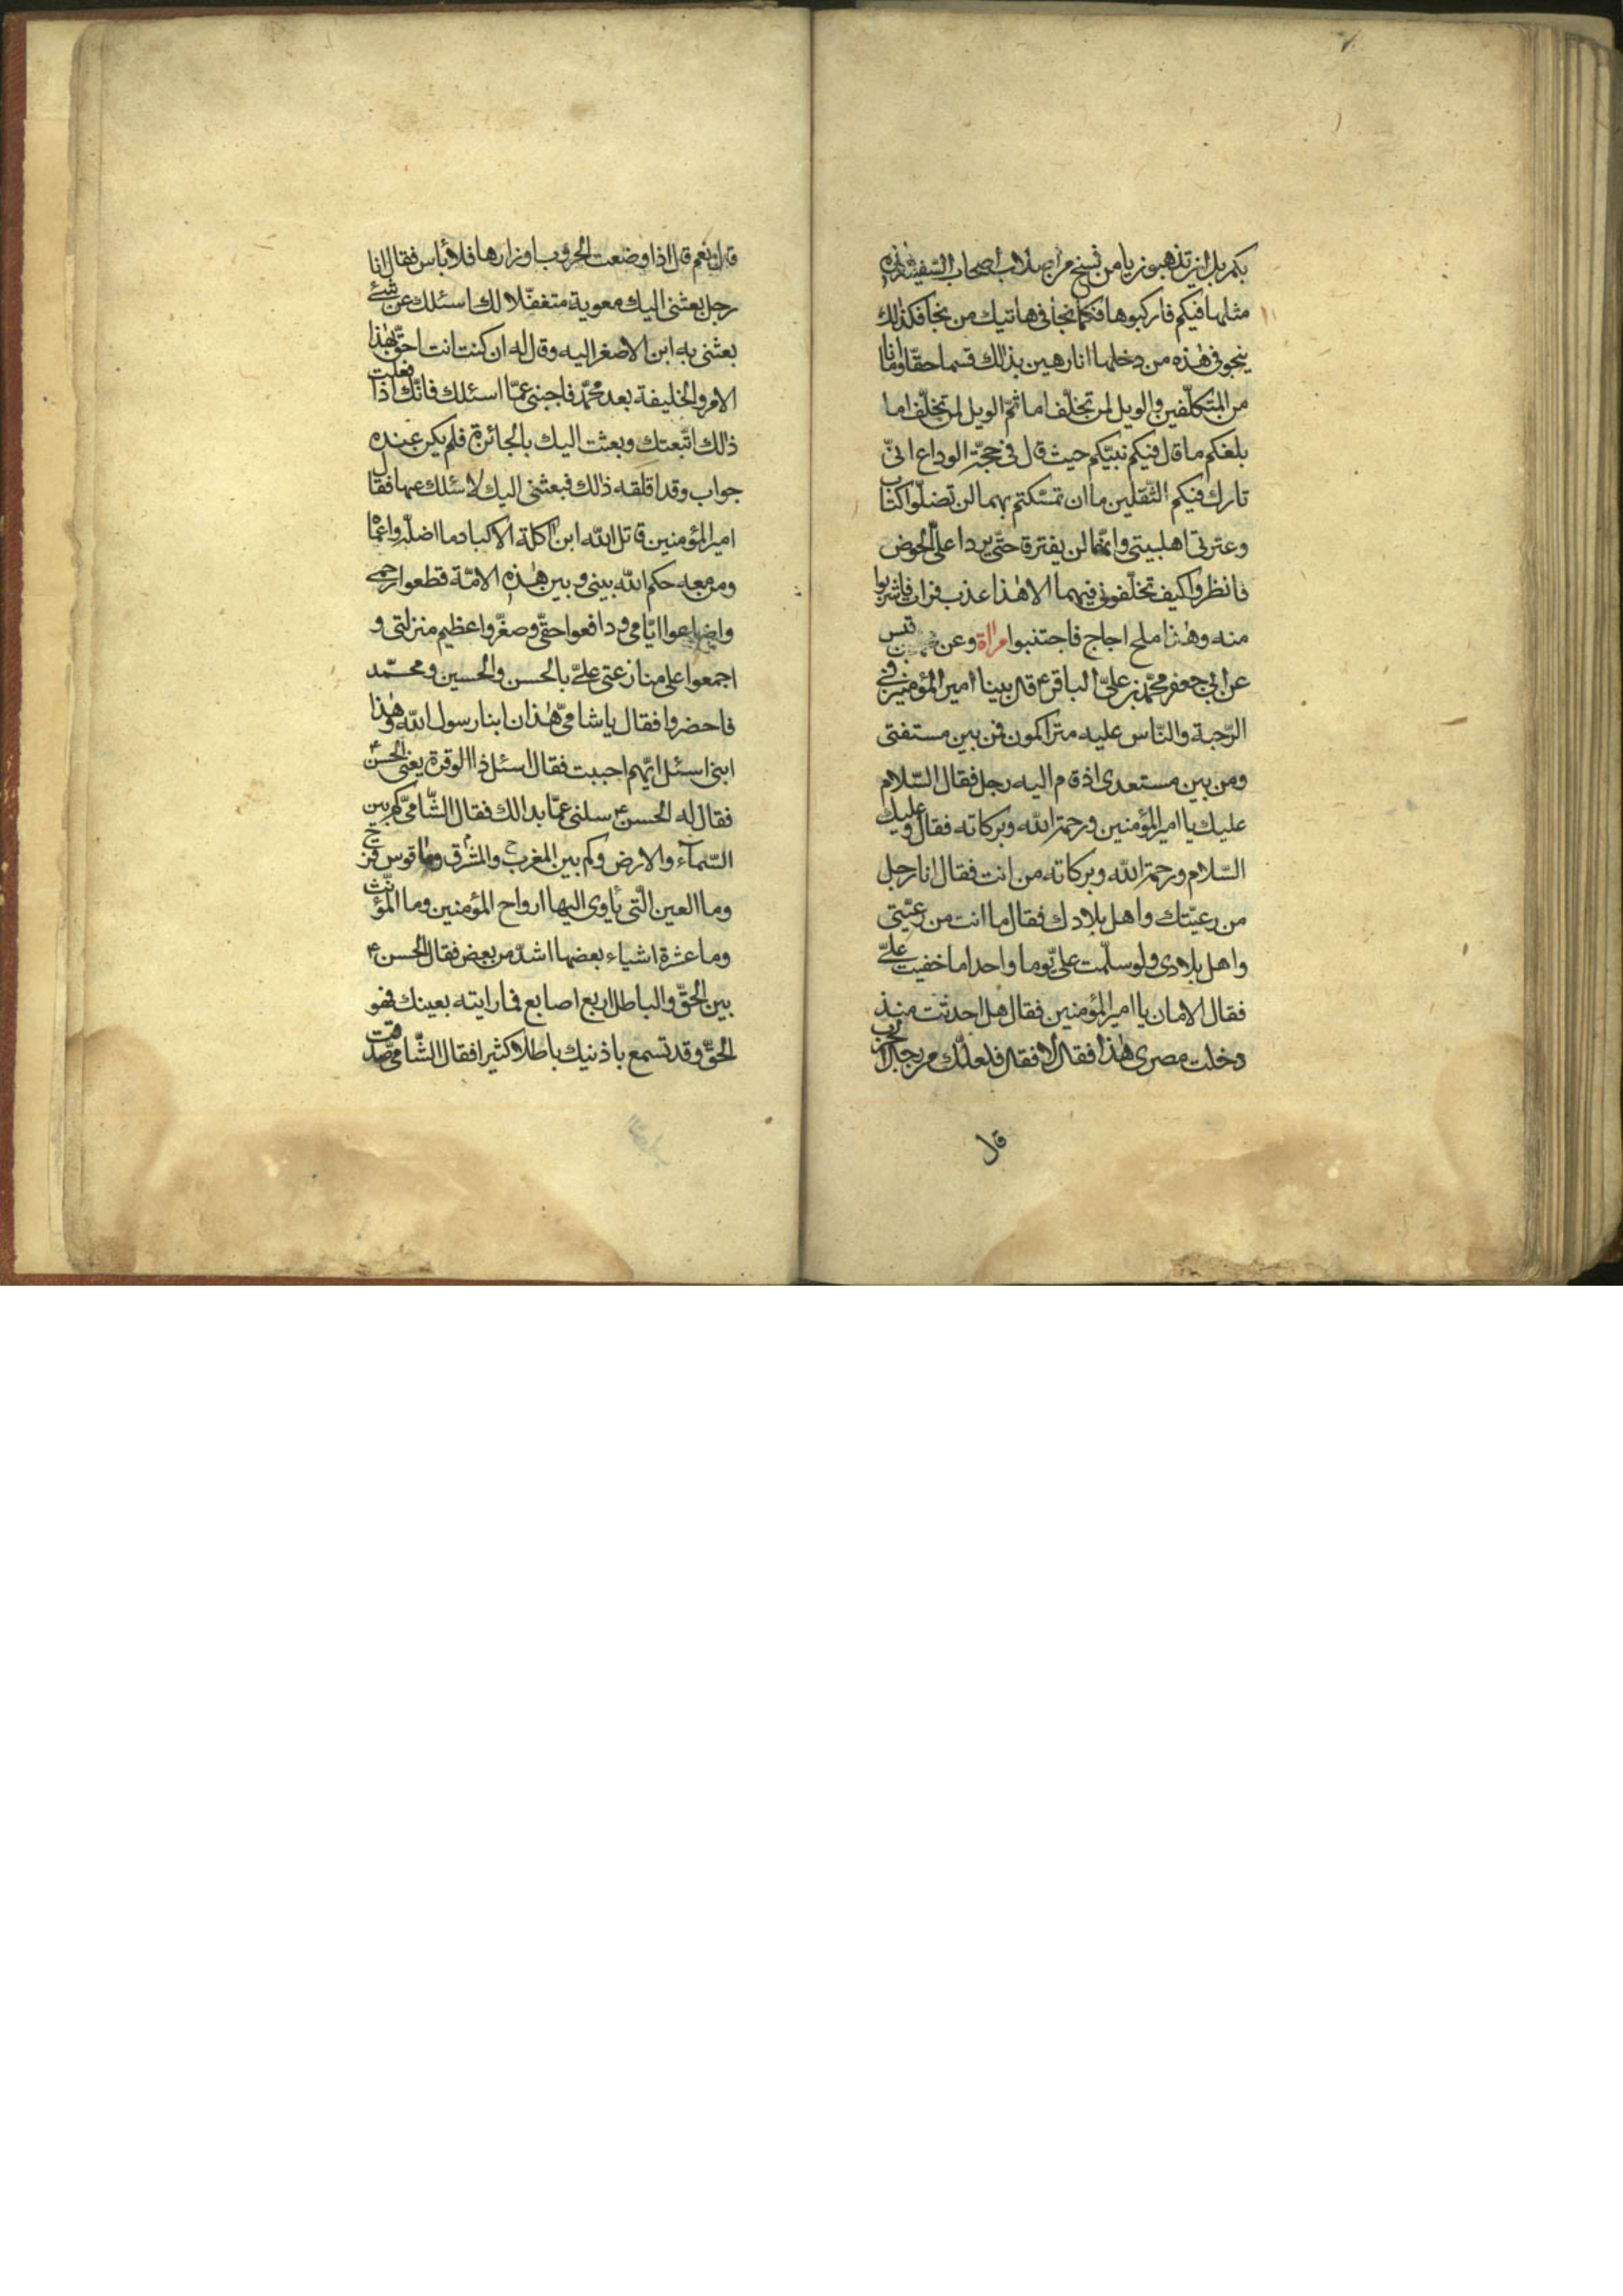 بكم بل اين تذهبون يا من نسخ من اصلاب اصحاب السّفينة هذه
مثلها فيكم فاركبوها فكما نجا فى هاتيك من نجا فكذلك
ينجو فى هٰذه من دخلها انا رهين بذلك قسما حقّا وما انا
من المتكلّفين والويل لمن تخلّف اما ثمّ الويل لمن تخلّف اما
بلغكم ما قال فيكم نبيّكم حيث قال فى حجّة الوداع انّى
تارك فيكم الثّقلين ما ان تمسّكتم بهما لن تضلّوا كتاب
وعترتى اهلبيتى وانّهما لن يفترقا حتّى يردا علىّ الحوض
فانظروا كيف تخلّفونى فيهما الا هٰذا عذب فرات فاشربوا
منه وهٰذا ملح اجاج فاجتنبوا وعن قيس
عن ابى جعفر محمّد بن علىّ الباقر ع قال بينا امير المؤمنين فى
الرّحبة والنّاس عليه متراكمون فمن بين مستفتى
ومن بين مستعدى اذ قام اليه رجل فقال السّلام
عليك يا امير المؤمنين ورحمة الله وبركاته فقال وعليك
السّلام ورحمة الله وبركاته من انت فقال انا رجل
من رعيّتك واهل بلادك فقال ما انت من رعيّتى
واهل بلادى ولو سلّمت علىّ يوما واحدا ما خفيت علىّ
فقال الامان يا امير المؤمنين فقال هل احدثت منذ
دخلت مصرى هٰذا فقال لا فقال فلعلّك من رجال الحرب
قال
قال نعم قال اذا وضعت الحروب اوزارها فلا بأس فقال انا
رجل بعثنى اليك معوية متغفّلا لك اسئلك عن شئ
بعثنى به ابن الاصغر اليه وقال له ان كنت انت احقّ بهٰذا
الامر والخليفة بعد محمّد فاجبنى عمّا اسئلك فانّك اذا فعلت
ذلك اتّبعتك وبعثت اليك بالجائزة فلم يكن عنده
جواب وقد اقلقه ذلك فبعثنى اليك لاسئلك عنها فقال
امير المؤمنين قاتل الله ابن اكلة الاكباد ما اضلّه واعماه
ومن معه حكم الله بينى وبين هٰذه الامّة قطعوا رحمى
واضاعوا ايّامى ودافعوا حقّى وصغّروا عظيم منزلتى و
اجمعوا على منازعتى علىّ بالحسن والحسين ومحمّد
فاحضروا فقال يا شامىّ هٰذان ابنا رسول الله وهٰذا
ابنى اسئل ايّهم احببت فقال اسئل ذا الوقرة يعنى الحسن ع
فقال له الحسن ع سلنى عمّا بدا لك فقال الشّامىّ كم بين
السّمآء والارض وكم بين المغرب والمشرق وما قوس قزح
وما العين الّتى يأوى اليها ارواح المؤمنين وما المؤنّث
وما عشرة اشياء بعضها اشدّ من بعض فقال الحسن ع
بين الحقّ والباطل اربع اصابع فما رايته بعينك فهو
الحقّ وقد تسمع باذنيك باطلا كثيرا فقال الشّامىّ صدقت